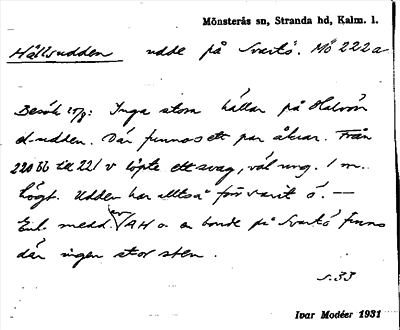 Mönsterås sn, Stranda hd, Kalm. l.
Hällsudden udde på Svartö. Mö 222a
Besök 25/8: Inga stora hällar på Halvön
el. udden. Där funnos ett par åkrar. Från
220 bb till 221 v löpte ett svag, väl ung. 1 m.
högt. Udden har alltså förr varit ö. —
Enl. medd. av AH o. en bonde på Svartö finns
där ingen stor sten.
s. 33
Ivar Modéer 1931